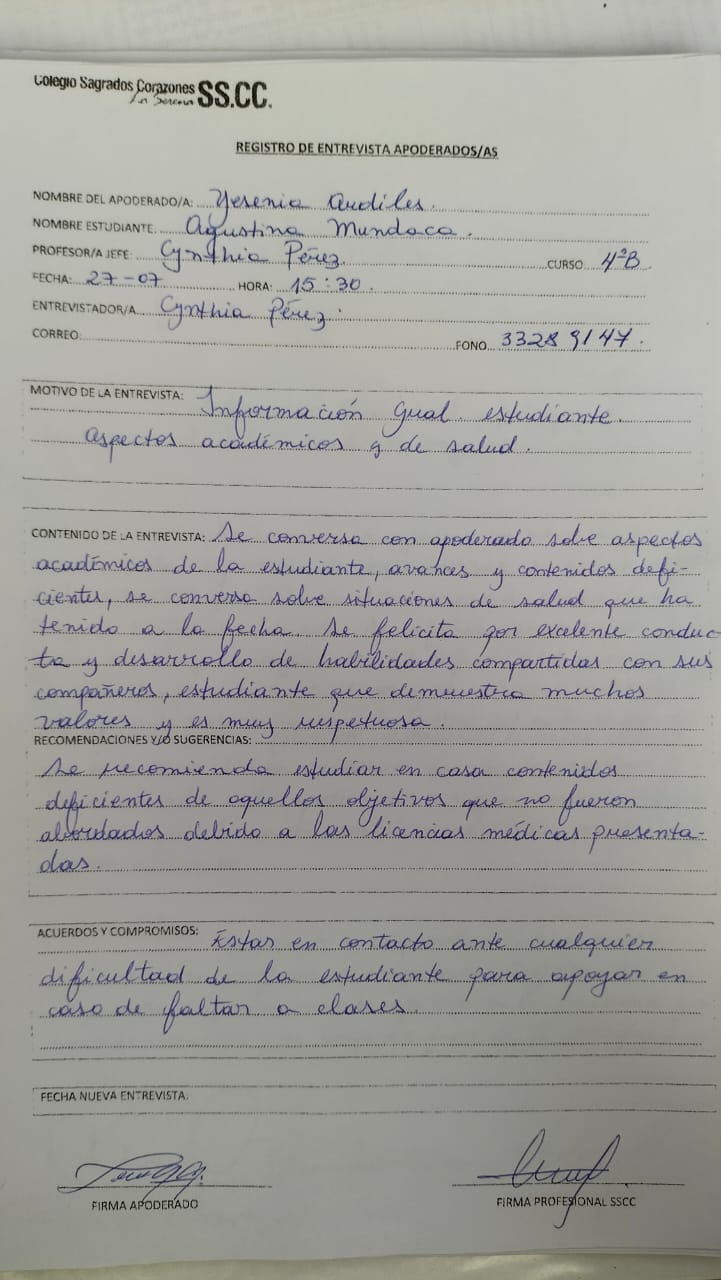 Colegio Sagrados Corazones SS.CC.
La Serena
REGISTRO DE ENTREVISTA APODERADOS/AS
NOMBRE DEL APODERADO/A: Yesenia Audiles.
NOMBRE ESTUDIANTE: Agustina Mundaca.
PROFESOR/A JEFE: Cynthia Pérez CURSO 4ºB
FECHA: 27-07 HORA: 15:30.
ENTREVISTADOR/A Cynthia Pérez.
CORREO: FONO 33289147.
MOTIVO DE LA ENTREVISTA: Información gual estudiante.
Aspectos académicos y de salud.
CONTENIDO DE LA ENTREVISTA: Se conversa con apoderado sobre aspectos
académicos de la estudiante, avances y contenidos defi-
cientes, se conversa sobre situaciones de salud que ha
tenido a la fecha. Se felicita por excelente conduc-
ta y desarrollo de habilidades compartidas con sus
compañeros, estudiante que demuestra muchos
valores y es muy respetuosa.
RECOMENDACIONES Y/O SUGERENCIAS:
Se recomienda estudiar en casa contenidos
deficientes de aquellos objetivos que no fueron
abordados debido a las licencias médicas presenta-
das.
ACUERDOS Y COMPROMISOS: Estar en contacto ante cualquier
dificultad de la estudiante para apoyar en
caso de faltar a clases.
FECHA NUEVA ENTREVISTA.
FIRMA APODERADO FIRMA PROFESIONAL SSCC